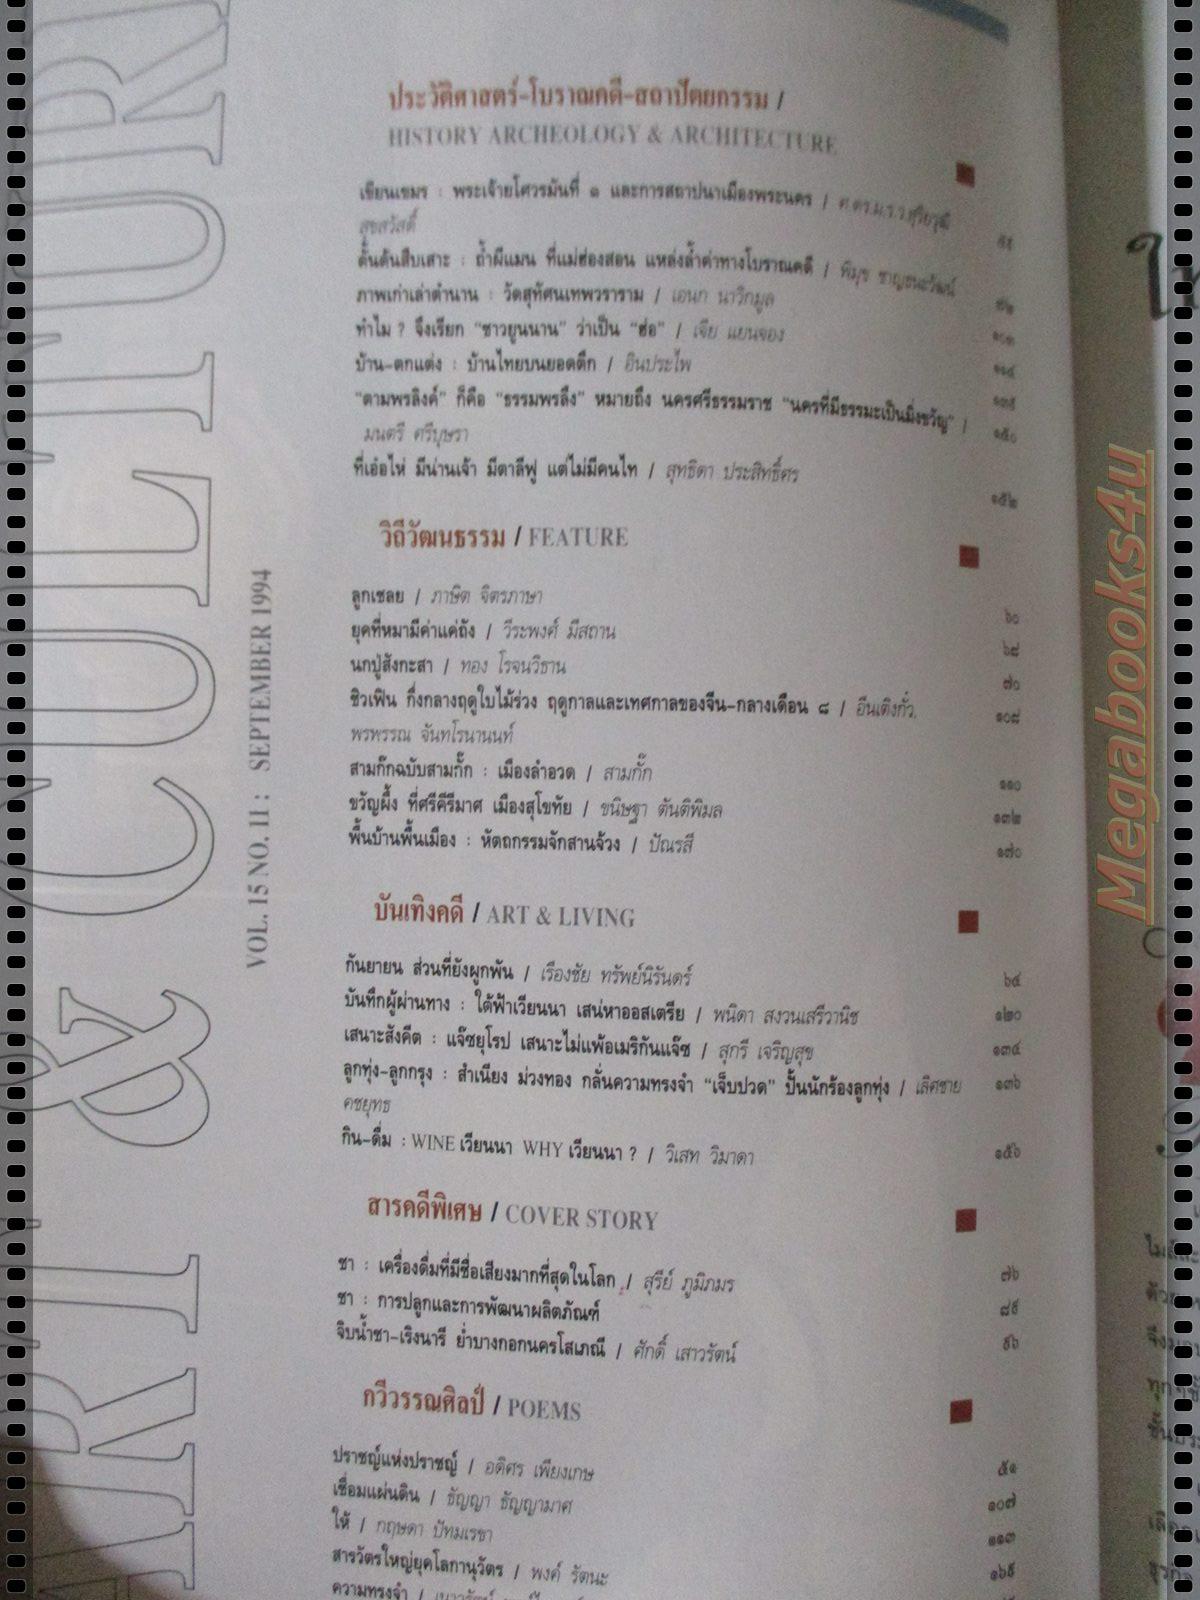 ประวัติศาสตร์-โบราณคดี-สถาปัตยกรรม /
HISTORY ARCHEOLOGY & ARCHITECTURE
เขียนเขมร : พระเจ้ายโศวรมันที่ ๑ และการสถาปนาเมืองพระนคร / ศ.ดร.ม.ร.ว.สุริยวุฒิ
สุขสวัสดิ์
ดั้นด้นสืบเสาะ : ถ้ำผีแมน ที่แม่ฮ่องสอน แหล่งล้ำค่าทางโบราณคดี / พิมุข ชาญธนะวัฒน์
ภาพเก่าเล่าตำนาน : วัดสุทัศนเทพวราราม / เอนก นาวิกมูล ๑๐๓
ทำไม ? จึงเรียก "ชาวยูนนาน" ว่าเป็น "ฮ่อ" / เจีย แยนจอง ๑๑๔
บ้าน-ตกแต่ง : บ้านไทยบนยอดตึก / อินประไพ
"ตามพรลิงค์" ก็คือ "ธรรมพรลึง" หมายถึง นครศรีธรรมราช "นครที่มีธรรมะเป็นมิ่งขวัญ" / ๑๕๐
มนตรี ศรีบุษรา
ที่เอ๋อไห่ มีน่านเจ้า มีตาลีฟู แต่ไม่มีคนไท / สุทธิดา ประสิทธิ์ศร ๑๕๒
วิถีวัฒนธรรม / FEATURE
ลูกเชลย / ภาษิต จิตรภาษา ๖๐
ยุคที่หมามีค่าแค่ถัง / วีระพงศ์ มีสถาน ๖๘
นกปู่สังกะสา / ทอง โรจนวิธาน ๗๐
ชิวเฟิน กึ่งกลางฤดูใบไม้ร่วง ฤดูกาลและเทศกาลของจีน-กลางเดือน ๘ / อึนเติงกั่ว, ๑๐๘
พรพรรณ จันทโรนานนท์
สามก๊กฉบับสามกั๊ก : เมืองลำอวด / สามกั๊ก ๑๑๐
ขวัญผึ้ง ที่ศรีคีรีมาศ เมืองสุโขทัย / ขนิษฐา ตันติพิมล ๑๓๒
พื้นบ้านพื้นเมือง : หัตถกรรมจักสานจ้วง / ปัณรสี ๑๗๐
บันเทิงคดี / ART & LIVING
กันยายน ส่วนที่ยังผูกพัน / เรืองชัย ทรัพย์นิรันดร์ ๖๔
บันทึกผู้ผ่านทาง : ใต้ฟ้าเวียนนา เสน่หาออสเตรีย / พนิดา สงวนเสรีวานิช ๑๒๐
เสนาะสังคีต : แจ๊ซยุโรป เสนาะไม่แพ้อเมริกันแจ๊ซ / สุกรี เจริญสุข ๑๓๔
ลูกทุ่ง-ลูกกรุง : สำเนียง ม่วงทอง กลั่นความทรงจำ "เจ็บปวด" ปั้นนักร้องลูกทุ่ง / เลิศชาย ๑๓๖
คชยุทธ
กิน-ดื่ม : WINE เวียนนา WHY เวียนนา ? / วิเสท วิมาดา ๑๕๖
สารคดีพิเศษ / COVER STORY
ชา : เครื่องดื่มที่มีชื่อเสียงมากที่สุดในโลก / สุรีย์ ภูมิภมร ๗๖
ชา : การปลูกและการพัฒนาผลิตภัณฑ์ ๘๙
จิบน้ำชา-เริงนารี ย่ำบางกอกนครโสเภณี / ศักดิ์ เสาวรัตน์ ๙๖
กวีวรรณศิลป์ / POEMS
ปราชญ์แห่งปราชญ์ / อดิศร เพียงเกษ ๕๑
เชื่อมแผ่นดิน / ธัญญา ธัญญามาศ ๑๐๗
ให้ / กฤษดา ปัทมเรขา ๑๑๓
สารวัตรใหญ่ยุคโลกานุวัตร / พงค์ รัตนะ ๑๖๙
ความทรงจำ /
VOL. 15 NO. 11 : SEPTEMBER 1994
ART & CULTUR
Megabooks4u